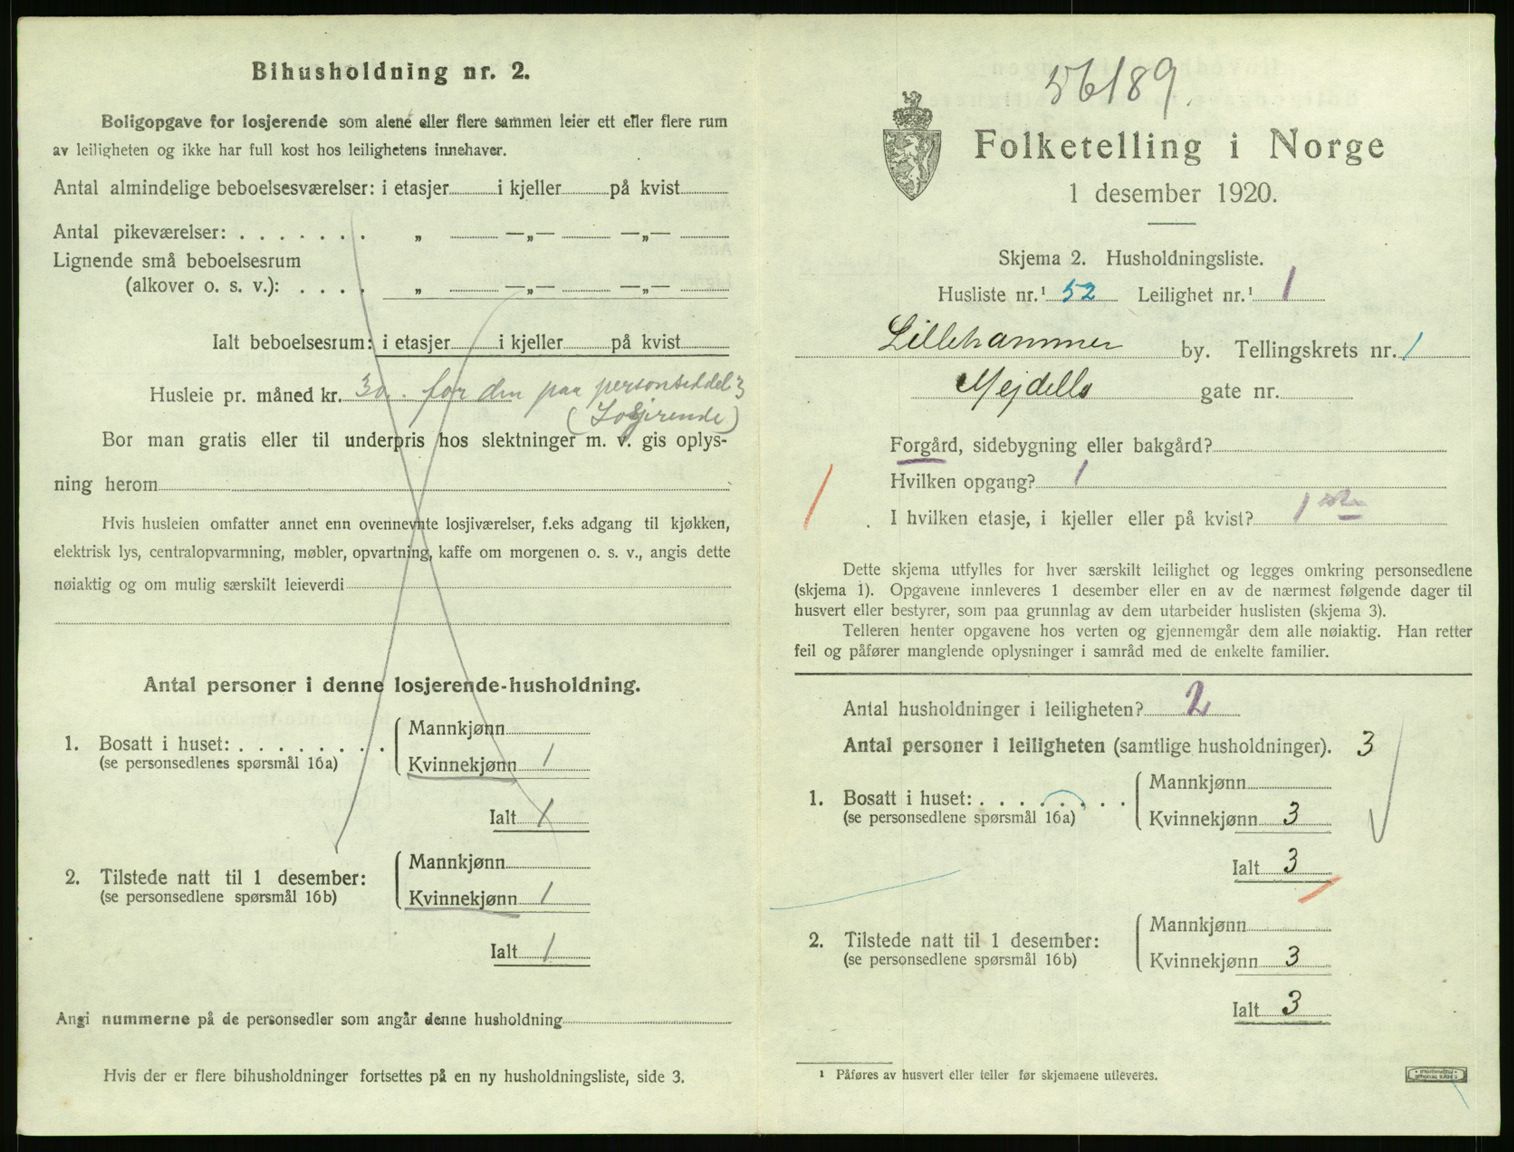 Bihusholdning nr. 2.
Boligopgave for losjerende som alene eller flere sammen leier ett eller flere rum
av leiligheten og ikke har full kost hos leilighetens innehaver.
Antal almindelige beboelsesværelser: i etasjer i kjeller på kvist
Antal pikeværelser: . . . . . . . „ —„— —„—
Lignende små beboelsesrum
(alkover o. s. v.): . . . . „ —„— —„—
Ialt beboelsesrum: i etasjer i kjeller på kvist
Husleie pr. måned kr. 30. for den paa personseddel 3
(Losjerende)
Bor man gratis eller til underpris hos slektninger m. v. gis oplys-
ning herom
Hvis husleien omfatter annet enn ovennevnte losjiværelser, f.eks adgang til kjøkken,
elektrisk lys, centralopvarmning, møbler, opvartning, kaffe om morgenen o. s. v., angis dette
nøiaktig og om mulig særskilt leieverdi
Antal personer i denne losjerende-husholdning.
Mannkjønn
1. Bosatt i huset: . . . . . . . .
(se personsedlenes spørsmål 16a)
Kvinnekjønn 1
Ialt 1
Mannkjønn
2. Tilstede natt til 1 desember:
(se personsedlene spørsmål 16b)
Kvinnekjønn 1
Ialt 1
Angi nummerne på de personsedler som angår denne husholdning
Hvis der er flere bihusholdninger fortsettes på en ny husholdningsliste, side 3.
56189.
Folketelling i Norge
1 desember 1920.
Skjema 2. Husholdningsliste.
Husliste nr.¹ 52 Leilighet nr.¹ 1
Lillehammer by. Tellingskrets nr. 1
Mejdells gate nr.
Forgård, sidebygning eller bakgård?
Hvilken opgang? 1
I hvilken etasje, i kjeller eller på kvist? 1ste
Dette skjema utfylles for hver særskilt leilighet og legges omkring personsedlene
(skjema 1). Opgavene innleveres 1 desember eller en av de nærmest følgende dager til
husvert eller bestyrer, som paa grunnlag av dem utarbeider huslisten (skjema 3).
Telleren henter opgavene hos verten og gjennemgår dem alle nøiaktig. Han retter
feil og påfører manglende oplysninger i samråd med de enkelte familier.
Antal husholdninger i leiligheten? 2
Antal personer i leiligheten (samtlige husholdninger). 3
Mannkjønn
1. Bosatt i huset: . . . . . . . .
(se personsedlene spørsmål 16a)
Kvinnekjønn 3
Ialt 3
Mannkjønn
2. Tilstede natt til 1 desember:
(se personsedlene spørsmål 16b)
Kvinnekjønn 3
Ialt 3
¹ Påføres av husvert eller teller før skjemaene utleveres.